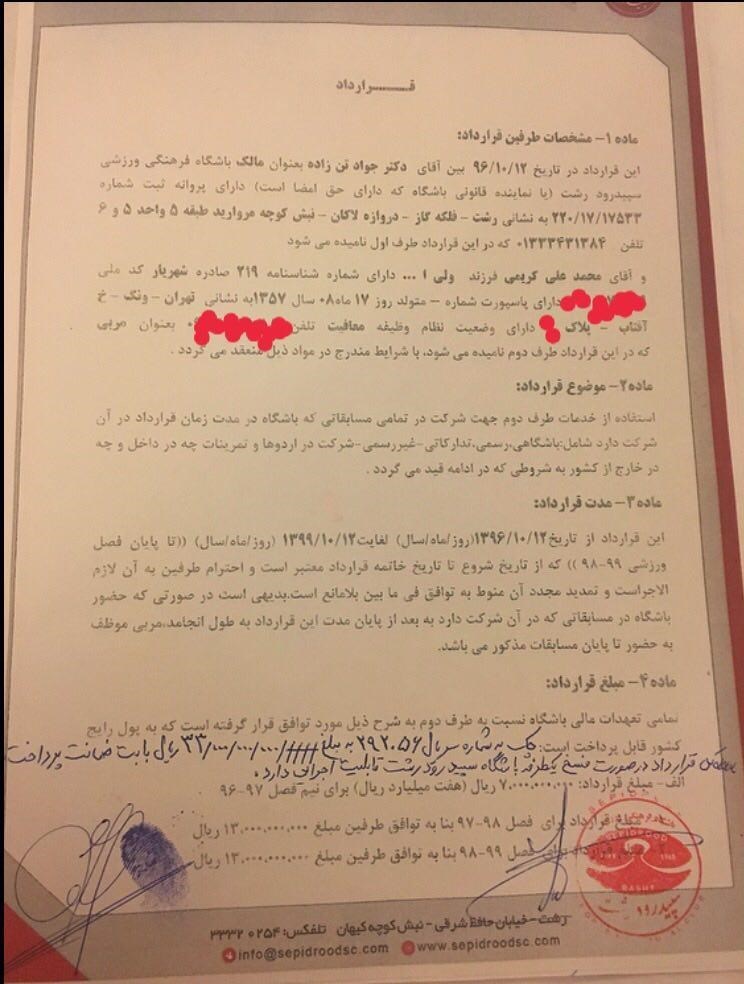 قـــــــرارداد
ماده ۱- مشخصات طرفین قرارداد:
این قرارداد در تاریخ ۹۶/۱۰/۱۲ بین آقای دکتر جواد تن زاده بعنوان مالک باشگاه فرهنگی ورزشی
سپیدرود رشت (یا نماینده قانونی باشگاه که دارای حق امضا است) دارای پروانه ثبت شماره
۲۲۰/۱۷/۱۷۵۳۳ به نشانی رشت - فلکه گاز - دروازه لاکان - نبش کوچه مروارید طبقه ۵ واحد ۵ و ۶
تلفن ۰۱۳۳۳۴۳۱۳۸۴ که در این قرارداد طرف اول نامیده می شود
و آقای محمد علی کریمی فرزند ولی ا ... دارای شماره شناسنامه ۲۱۹ صادره شهریار کد ملی
دارای پاسپورت شماره - متولد روز ۱۷ ماه ۰۸ سال ۱۳۵۷ به نشانی تهران - ونک - خ
آفتاب - پلاک دارای وضعیت نظام وظیفه معافیت تلفن بعنوان مربی
که در این قرارداد طرف دوم نامیده می شود، با شرایط مندرج در مواد ذیل منعقد می گردد .
ماده۲- موضوع قرارداد:
استفاده از خدمات طرف دوم جهت شرکت در تمامی مسابقاتی که باشگاه در مدت زمان قرارداد در آن
شرکت دارد شامل:باشگاهی،رسمی،تدارکاتی-غیررسمی-شرکت در اردوها و تمرینات چه در داخل و چه
در خارج از کشور به شروطی که در ادامه قید می گردد .
ماده ۳- مدت قرارداد:
این قرارداد از تاریخ۱۳۹۶/۱۰/۱۲(روز/ماه/سال) لغایت۱۳۹۹/۱۰/۱۲ (روز/ماه/سال) ((تا پایان فصل
ورزشی ۹۹-۹۸ )) که از تاریخ شروع تا تاریخ خاتمه قرارداد معتبر است و احترام طرفین به آن لازم
الاجراست و تمدید مجدد آن منوط به توافق فی ما بین بلامانع است.بدیهی است در صورتی که حضور
باشگاه در مسابقاتی که در آن شرکت دارد به بعد از پایان مدت این قرارداد به طول انجامد،مربی موظف
به حضور تا پایان مسابقات مذکور می باشد.
ماده ۴- مبلغ قرارداد:
تمامی تعهدات مالی باشگاه نسبت به طرف دوم به شرح ذیل مورد توافق قرار گرفته است که به پول رایج
کشور قابل پرداخت است: چک به شماره سریال ۲۹۲۰۵۶ به مبلغ ۳۳/۰۰۰/۰۰۰/۰۰۰ ریال بابت ضمانت پرداخت
قرارداد در صورت فسخ یکطرفه باشگاه سپید رود رشت قابلیت اجرائی دارد.
الف- مبلغ قرارداد: ۷.۰۰۰.۰۰۰.۰۰۰ ریال (هفت میلیارد ریال) برای نیم فصل ۹۷-۹۶
مبلغ قرارداد برای فصل ۹۸-۹۷ بنا به توافق طرفین مبلغ ۱۳.۰۰۰.۰۰۰.۰۰۰ ریال
قرارداد برای فصل ۹۹-۹۸ بنا به توافق طرفین مبلغ ۱۳.۰۰۰.۰۰۰.۰۰۰ ریال
SEPIDROOD
RASHT
سپیدرود رشت
رشت-خیابان حافظ شرقی - نبش کوچه کیهان تلفکس: ۳۳۳۲۰۲۵۴
info@sepidroodsc.com www.sepidroodsc.com